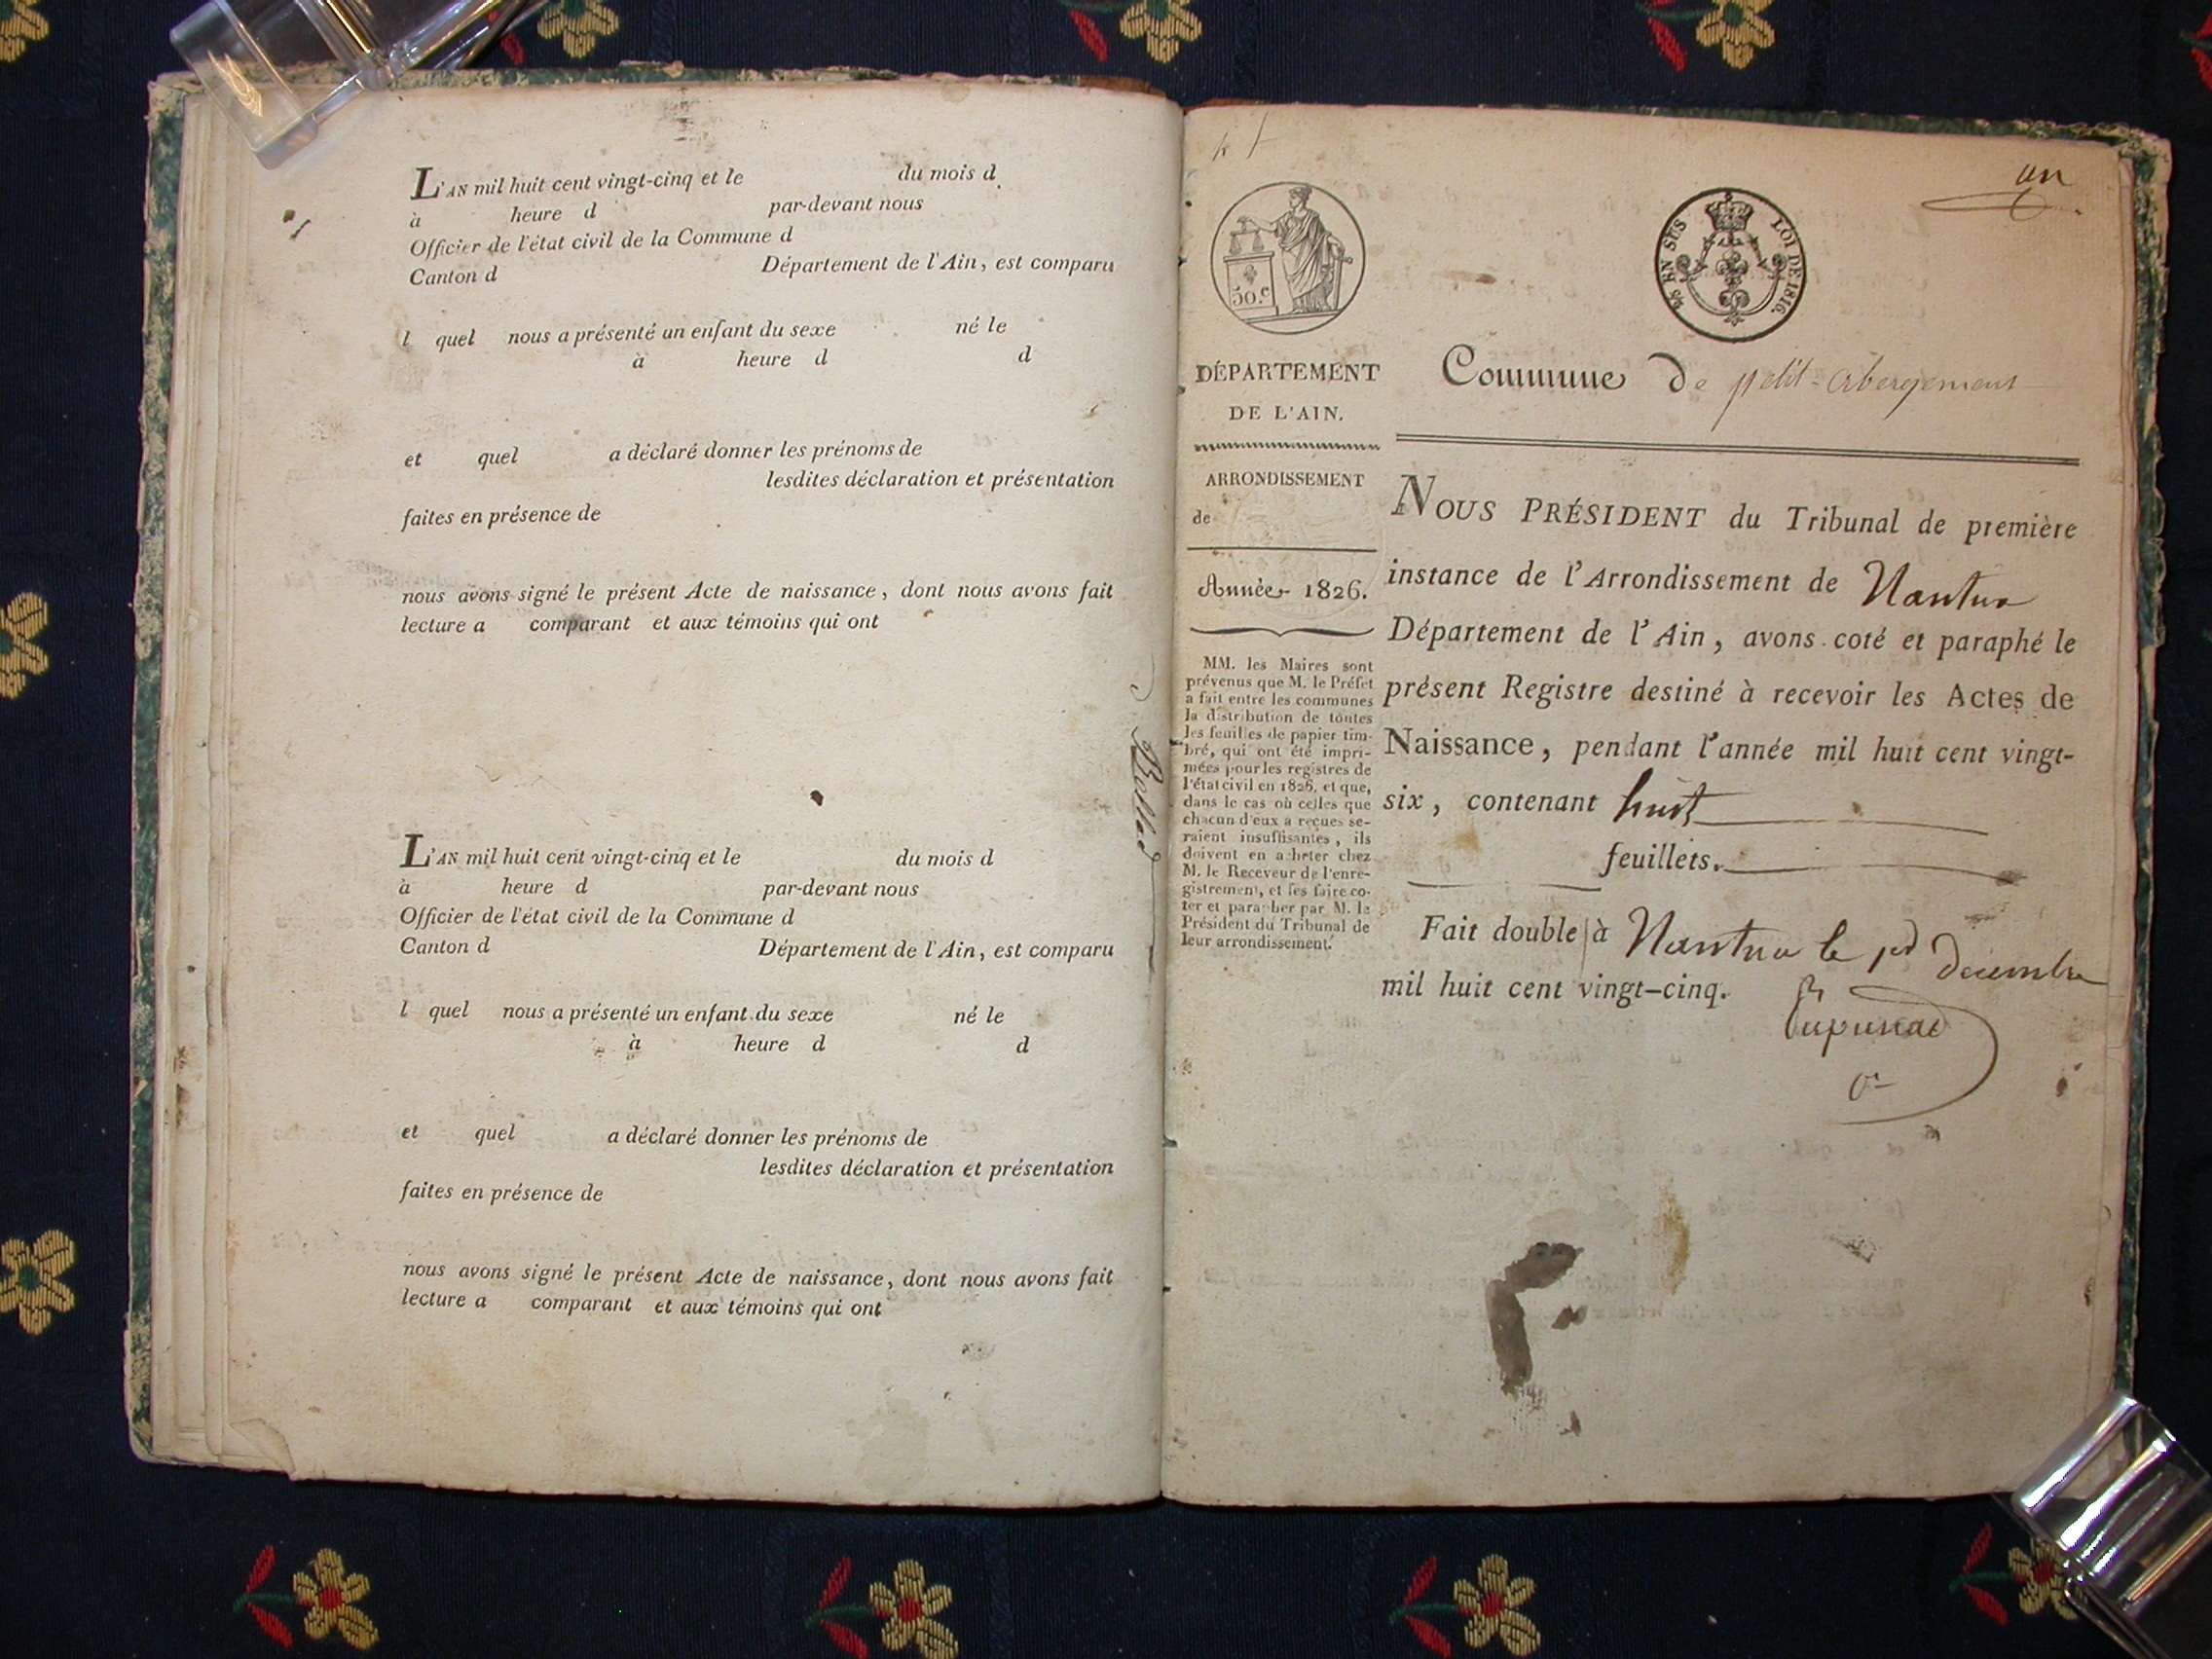 L'AN mil huit cent vingt-cinq et le du mois d
à heure d par-devant nous
Officier de l'état civil de la Commune d
Canton d Département de l'Ain, est comparu
l quel nous a présenté un enfant du sexe né le
à heure d d
et quel a déclaré donner les prénoms de
lesdites déclaration et présentation
faites en présence de
nous avons signé le présent Acte de naissance, dont nous avons fait
lecture a comparant et aux témoins qui ont
L'AN mil huit cent vingt-cinq et le du mois d
à heure d par-devant nous
Officier de l'état civil de la Commune d
Canton d Département de l'Ain, est comparu
l quel nous a présenté un enfant du sexe né le
à heure d d
et quel a déclaré donner les prénoms de
lesdites déclaration et présentation
faites en présence de
nous avons signé le présent Acte de naissance, dont nous avons fait
lecture a comparant et aux témoins qui ont
un
50.c
EN SUS LOI DE 1816.
DÉPARTEMENT
DE L'AIN.
ARRONDISSEMENT
de
Année 1826.
MM. les Maires sont
prévenus que M. le Préfet
a fait entre les communes
la distribution de toutes
les feuilles de papier tim-
bré, qui ont été impri-
mées pour les registres de
l'état civil en 1826, et que,
dans le cas où celles que
chacun d'eux a reçues se-
raient insuffisantes, ils
doivent en acheter chez
M. le Receveur de l'enre-
gistrement, et les faire co-
ter et parapher par M. le
Président du Tribunal de
leur arrondissement.
Commune De petit-abergement
NOUS PRÉSIDENT du Tribunal de première
instance de l'Arrondissement de Nantua
Département de l'Ain, avons coté et paraphé le
présent Registre destiné à recevoir les Actes de
Naissance, pendant l'année mil huit cent vingt-
six, contenant huit
feuillets.
Fait double à Nantua le pr decembre
mil huit cent vingt-cinq.